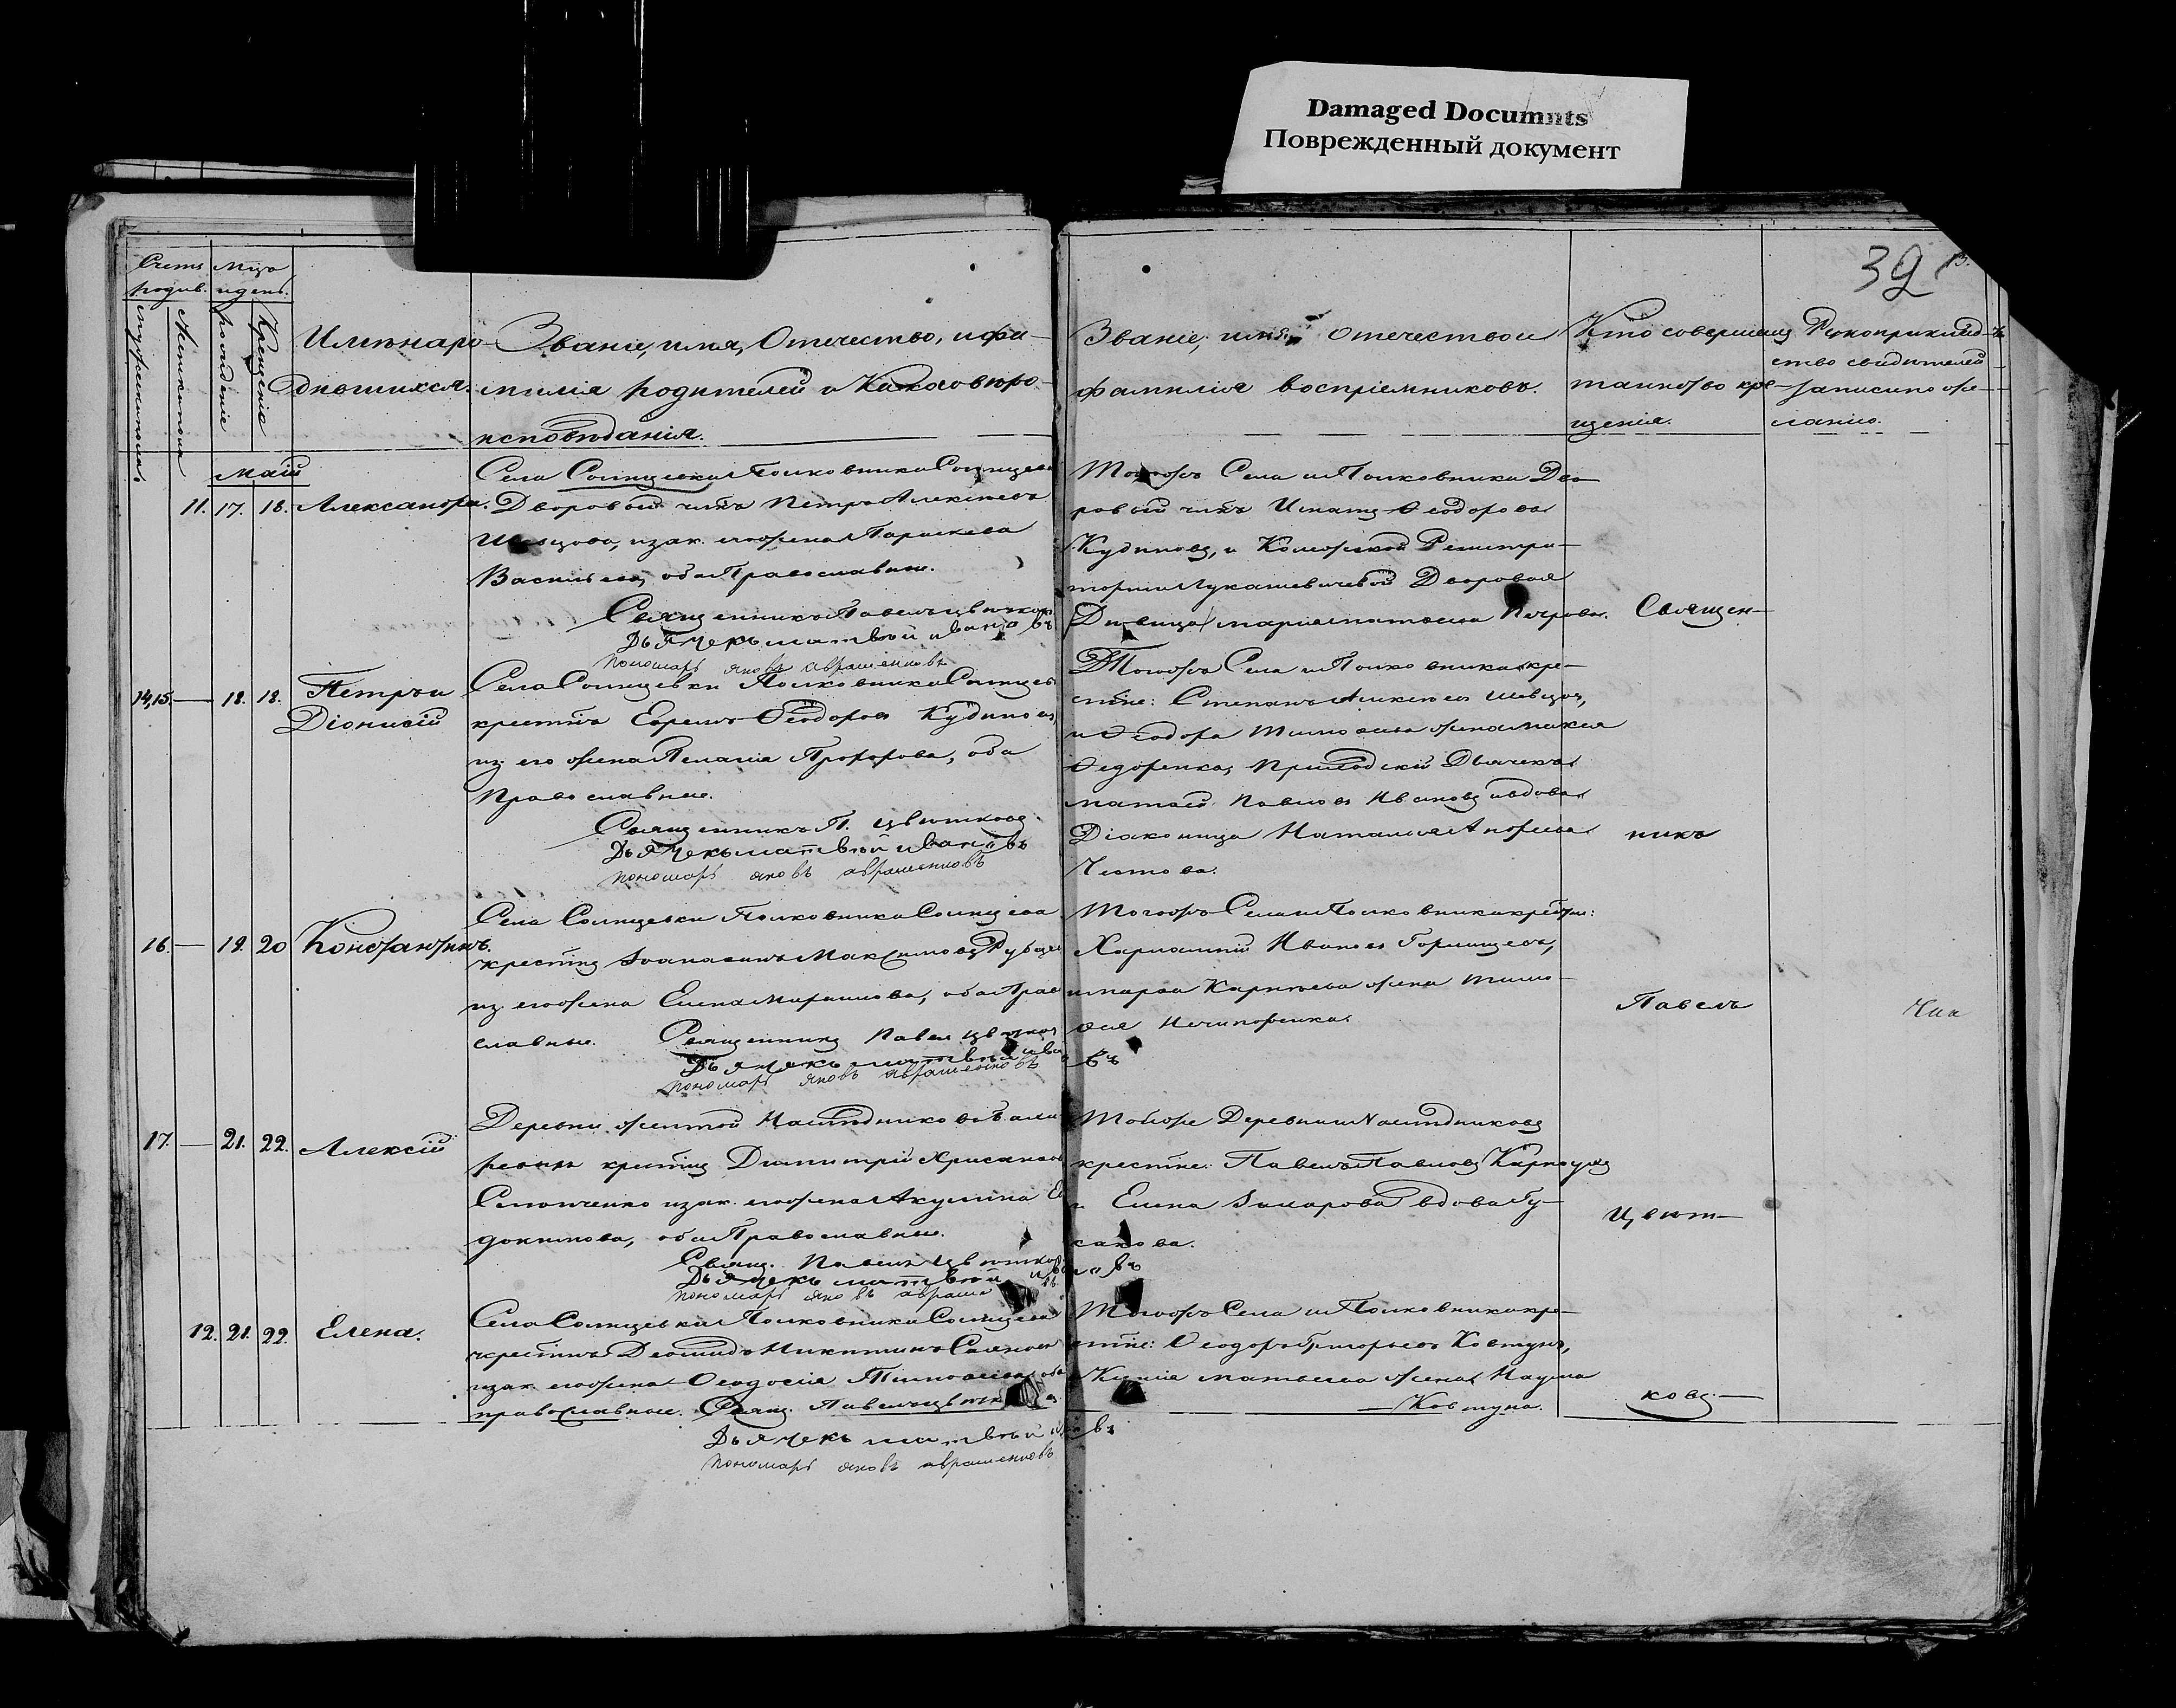 Damaged Documnts
Поврежденный документ
39
Счетъ
родив.
Мѣсо
и день.
мужескаго пола.
Женскаго пола
рожденіе
Крещенія
Имена ро-
дившихся.
Званіе, имя, Отчество, и фа-
милія родителей и Какого вѣро-
исповѣданія.
Званіе, имя, отчество и
фамилія воспріемниковъ.
Кто совершалъ
таинство кре-
щенія.
Рукоприклад-
ство свидѣтелей
записи по же-
ланію.
Маій
11. 17. 18. Александра.
Села Солнцевки Полковника Солнцева
Дворовой чит Петръ Алексѣевъ
Швецовъ, и зак. его жена Параскева
Васильева, оба Православные.
Священникъ Павелъ Цвѣтковъ
Дьячекъ матвѣй ивановъ
пономарь яковъ авраменковъ
Тогожъ Села и Полковника Дво-
ровой чит Игнатъ Ѳеодоровъ
Кудиновъ, и Колежской Регистра-
торши Лукашевичевой Дворовая
Дѣвица Петрова.
14,15. — 18. 18. Петръ и
Діонисій
Села Солнцевки Полковника Солнцева
крестнъ Ефремъ Ѳеодоровъ Кудиновъ,
и з. его жена Пелагія Прохорова, оба
Православные.
Священникъ П. Цвѣтковъ
Дьячекъ матвѣй ивановъ
пономарь яковъ авраменковъ
Тогожъ Села и Полковника кре-
стне: Степанъ Алексѣевъ Швецовъ,
и Ѳеодора жена
Ѳедоренка, Приходскій Дьячекъ
матвѣй Павловъ Ивановъ и вдова
Діаконица Наталія
16. — 19. 20 Константинъ.
Села Солнцевки Полковника Солнцева
крестнъ Аѳанасій Максимовъ
и з. его жена Елена, оба Право
славные. Священникъ Павелъ Цвѣтков
Дьячекъ матвѣй ивановъ
пономарь яковъ авраменковъ
Тогожъ Села и Полковника крестне:
Харлампій Ивановъ
жена Тимо-
ѳея Нечипоренка.
17. — 21. 22. Алексій
Деревни Желтой Наслѣдниковъ
крестнъ Димитрій
и зак. его жена Акулина Ев
докимова, оба Православные.
Свящ. Павелъ Цвѣтков
Дьячекъ матвѣй ивановъ
пономарь яковъ авраме
Тойже Деревни и Наслѣдниковъ
крестне: Павелъ Павловъ
и Елена Захарова вдова Гу-
сакова.
12. 21. 22. Елена.
Села Солнцевки Полковника Солнцева
крестнъ Никитинъ
и зак. его жена Ѳеодосія Тимоѳеева оба
православные. Свящ. Павелъ Цвѣтк
Дьячекъ матвѣй ивановъ
пономарь яковъ авраменковъ
Тогожъ Села и Полковника кре-
стне: Ѳеодоръ Григорьевъ Ковтунъ,
Ксенія матвеева жена Наума
Ковтуна.
Священ-
никъ
Павелъ
Цвѣт-
ковъ.